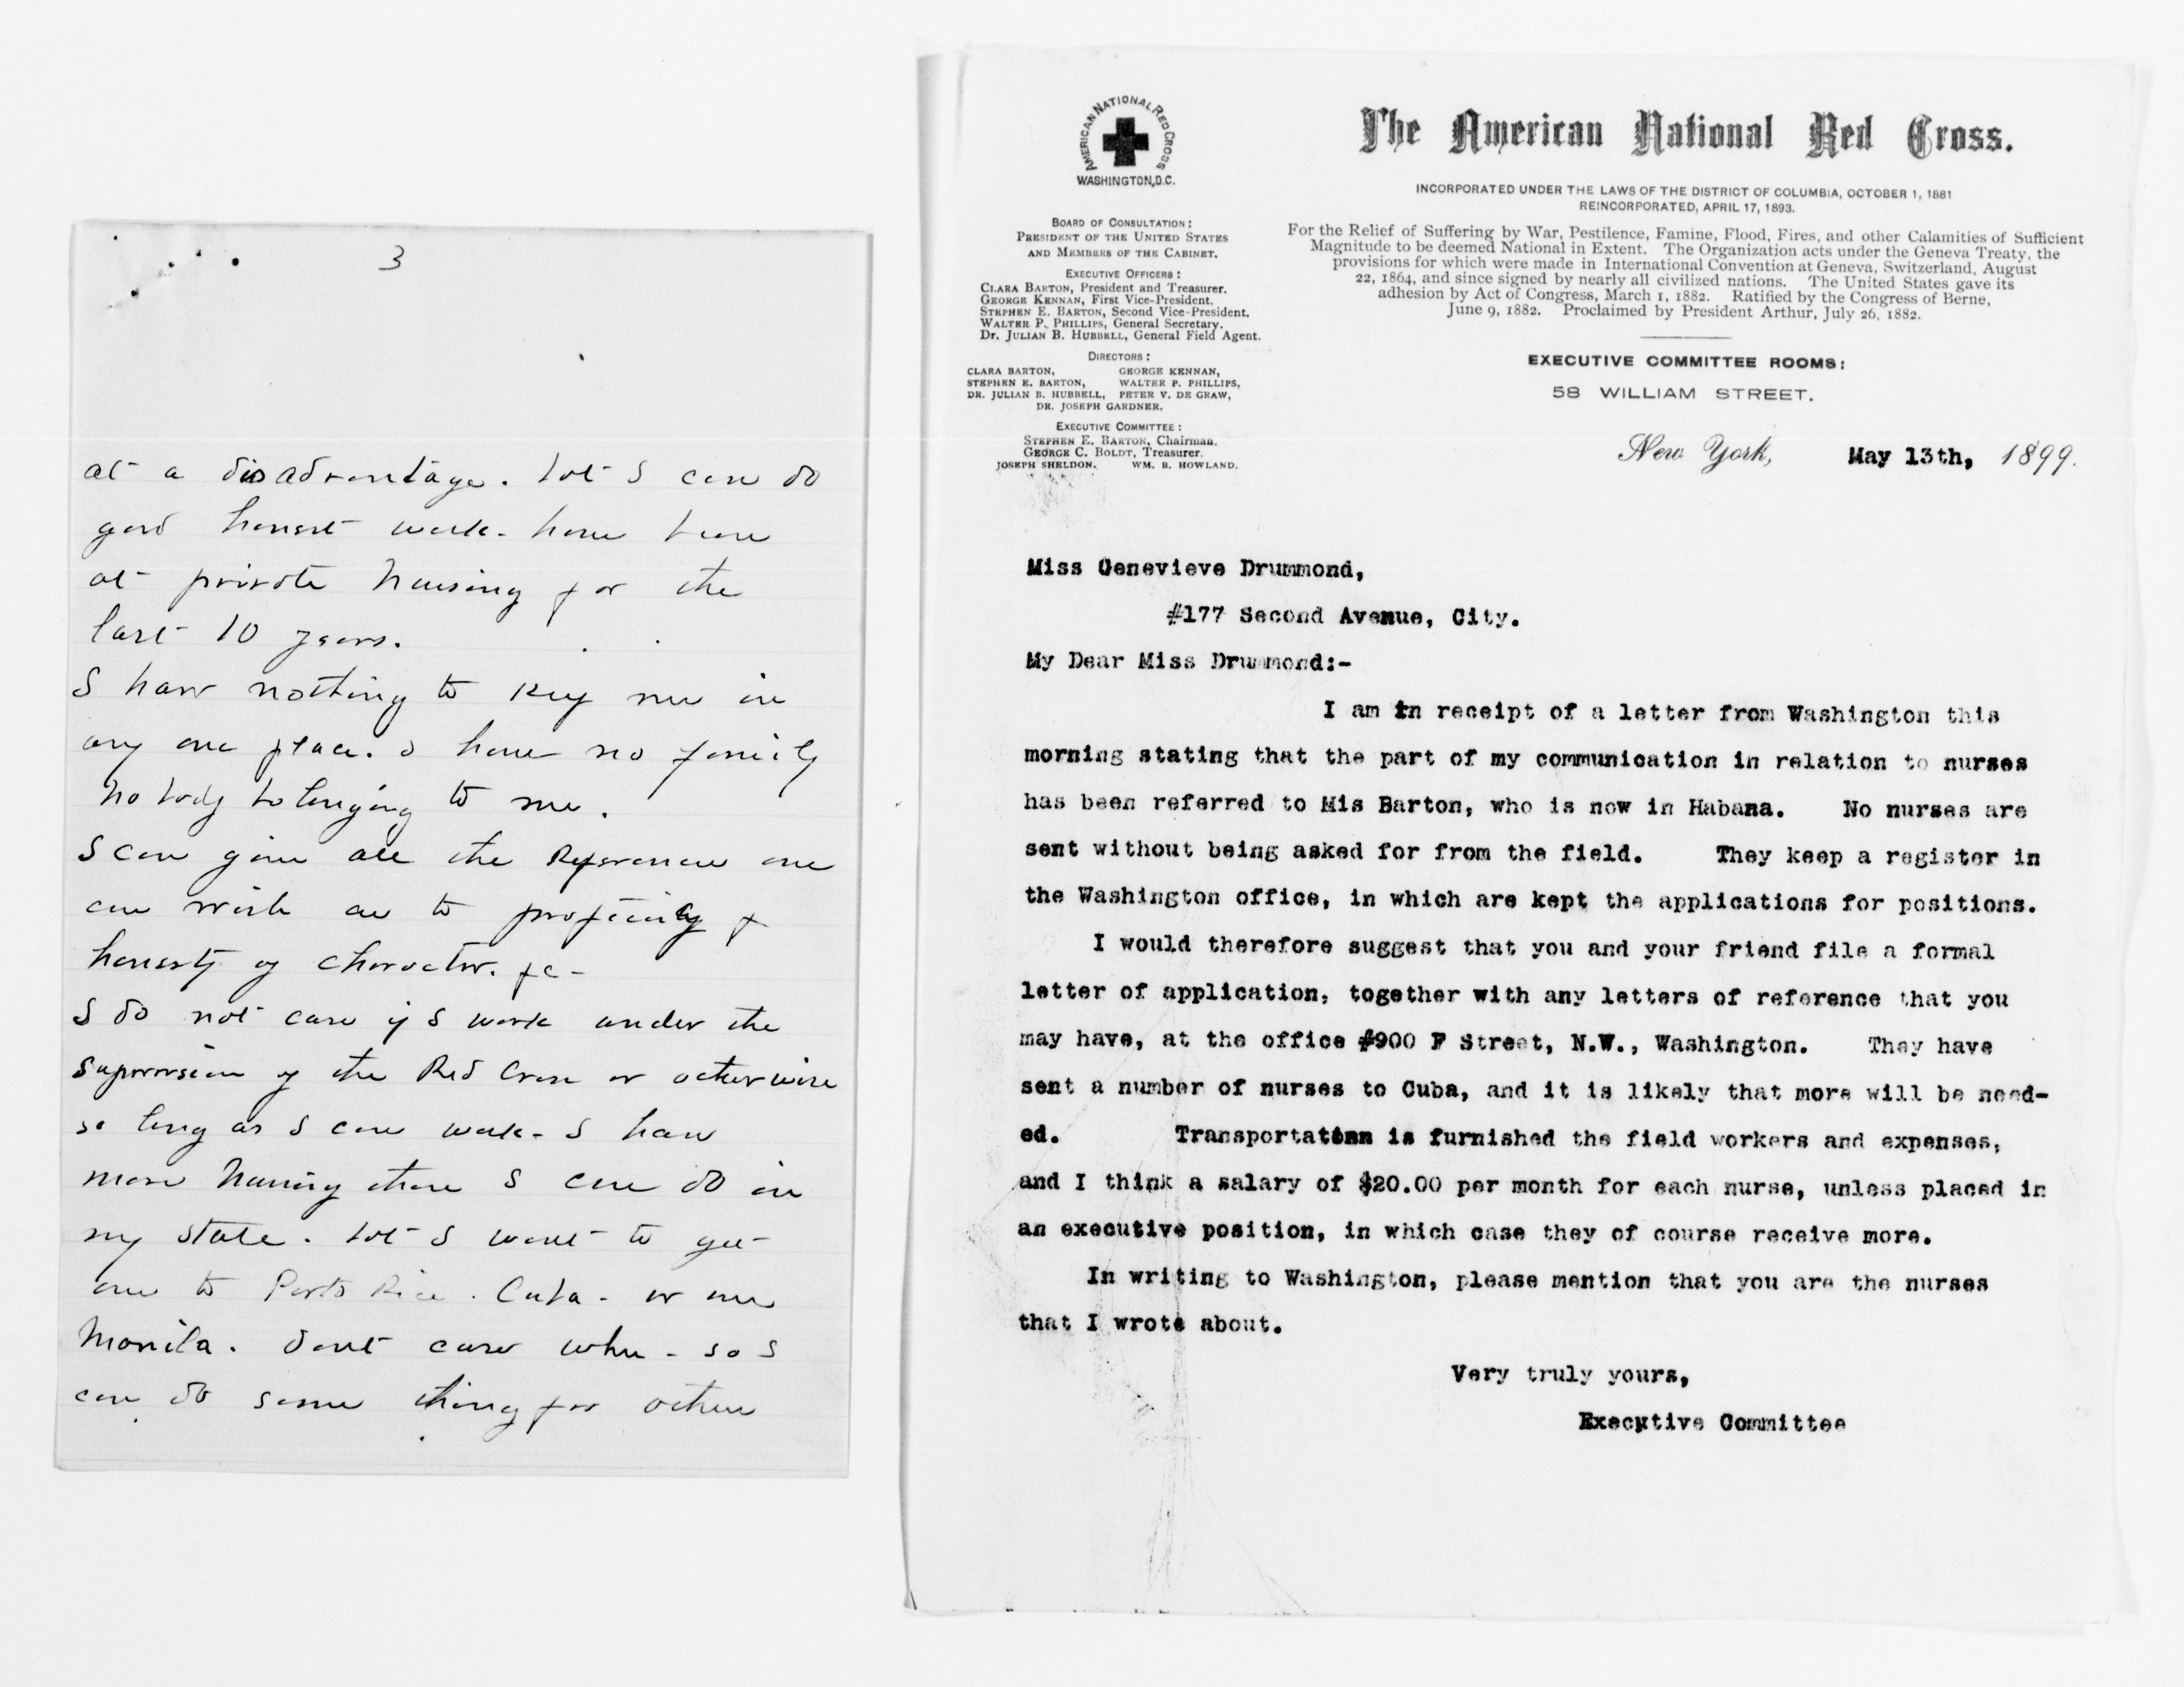 3
at a disadvantage. but I can do
good honest work - have been
at private nursing for the
last 10 years.
I have nothing to keep me in
any one place. I have no family
no body belonging to me.
I can give all the References one
can wish as to proficiency &
honesty of character. &c -
I do not care if I work under the
supervision of the Red Cross or otherwise
so long as I can work - I have
more nursing than I can do in
my state. but I want to get
one to Porto Rico. Cuba - or one
Manila. dont care where - so I
can do some thing for others
AMERICAN NATIONAL RED CROSS
WASHINGTON, D.C.
BOARD OF CONSULTATION:
PRESIDENT OF THE UNITED STATES
AND MEMBERS OF THE CABINET.
EXECUTIVE OFFICERS:
CLARA BARTON, President and Treasurer.
GEORGE KENNAN, First Vice-President.
STEPHEN E. BARTON, Second Vice-President.
WALTER P. PHILLIPS, General Secretary.
Dr. JULIAN B. HUBBELL, General Field Agent.
DIRECTORS:
CLARA BARTON, GEORGE KENNAN,
STEPHEN E. BARTON, WALTER P. PHILLIPS,
DR. JULIAN B. HUBBELL, PETER V. DE GRAW,
DR. JOSEPH GARDNER.
EXECUTIVE COMMITTEE:
STEPHEN E. BARTON, Chairman.
GEORGE C. BOLDT, Treasurer.
JOSEPH SHELDON. WM. B. HOWLAND.
The American National Red Cross.
INCORPORATED UNDER THE LAWS OF THE DISTRICT OF COLUMBIA, OCTOBER 1, 1881
REINCORPORATED, APRIL 17, 1893.
For the Relief of Suffering by War, Pestilence, Famine, Flood, Fires, and other Calamities of Sufficient
Magnitude to be deemed National in Extent. The Organization acts under the Geneva Treaty, the
provisions for which were made in International Convention at Geneva, Switzerland, August
22, 1864, and since signed by nearly all civilized nations. The United States gave its
adhesion by Act of Congress, March 1, 1882. Ratified by the Congress of Berne,
June 9, 1882. Proclaimed by President Arthur, July 26, 1882.
EXECUTIVE COMMITTEE ROOMS:
58 WILLIAM STREET.
New York, May 13th, 1899.
Miss Genevieve Drummond,
#177 Second Avenue, City.
My Dear Miss Drummond:-
I am in receipt of a letter from Washington this
morning stating that the part of my communication in relation to nurses
has been referred to Mis Barton, who is now in Habana. No nurses are
sent without being asked for from the field. They keep a register in
the Washington office, in which are kept the applications for positions.
I would therefore suggest that you and your friend file a formal
letter of application, together with any letters of reference that you
may have, at the office #900 F Street, N.W., Washington. They have
sent a number of nurses to Cuba, and it is likely that more will be need-
ed. Transportation is furnished the field workers and expenses,
and I think a salary of $20.00 per month for each nurse, unless placed in
an executive position, in which case they of course receive more.
In writing to Washington, please mention that you are the nurses
that I wrote about.
Very truly yours,
Executive Committee